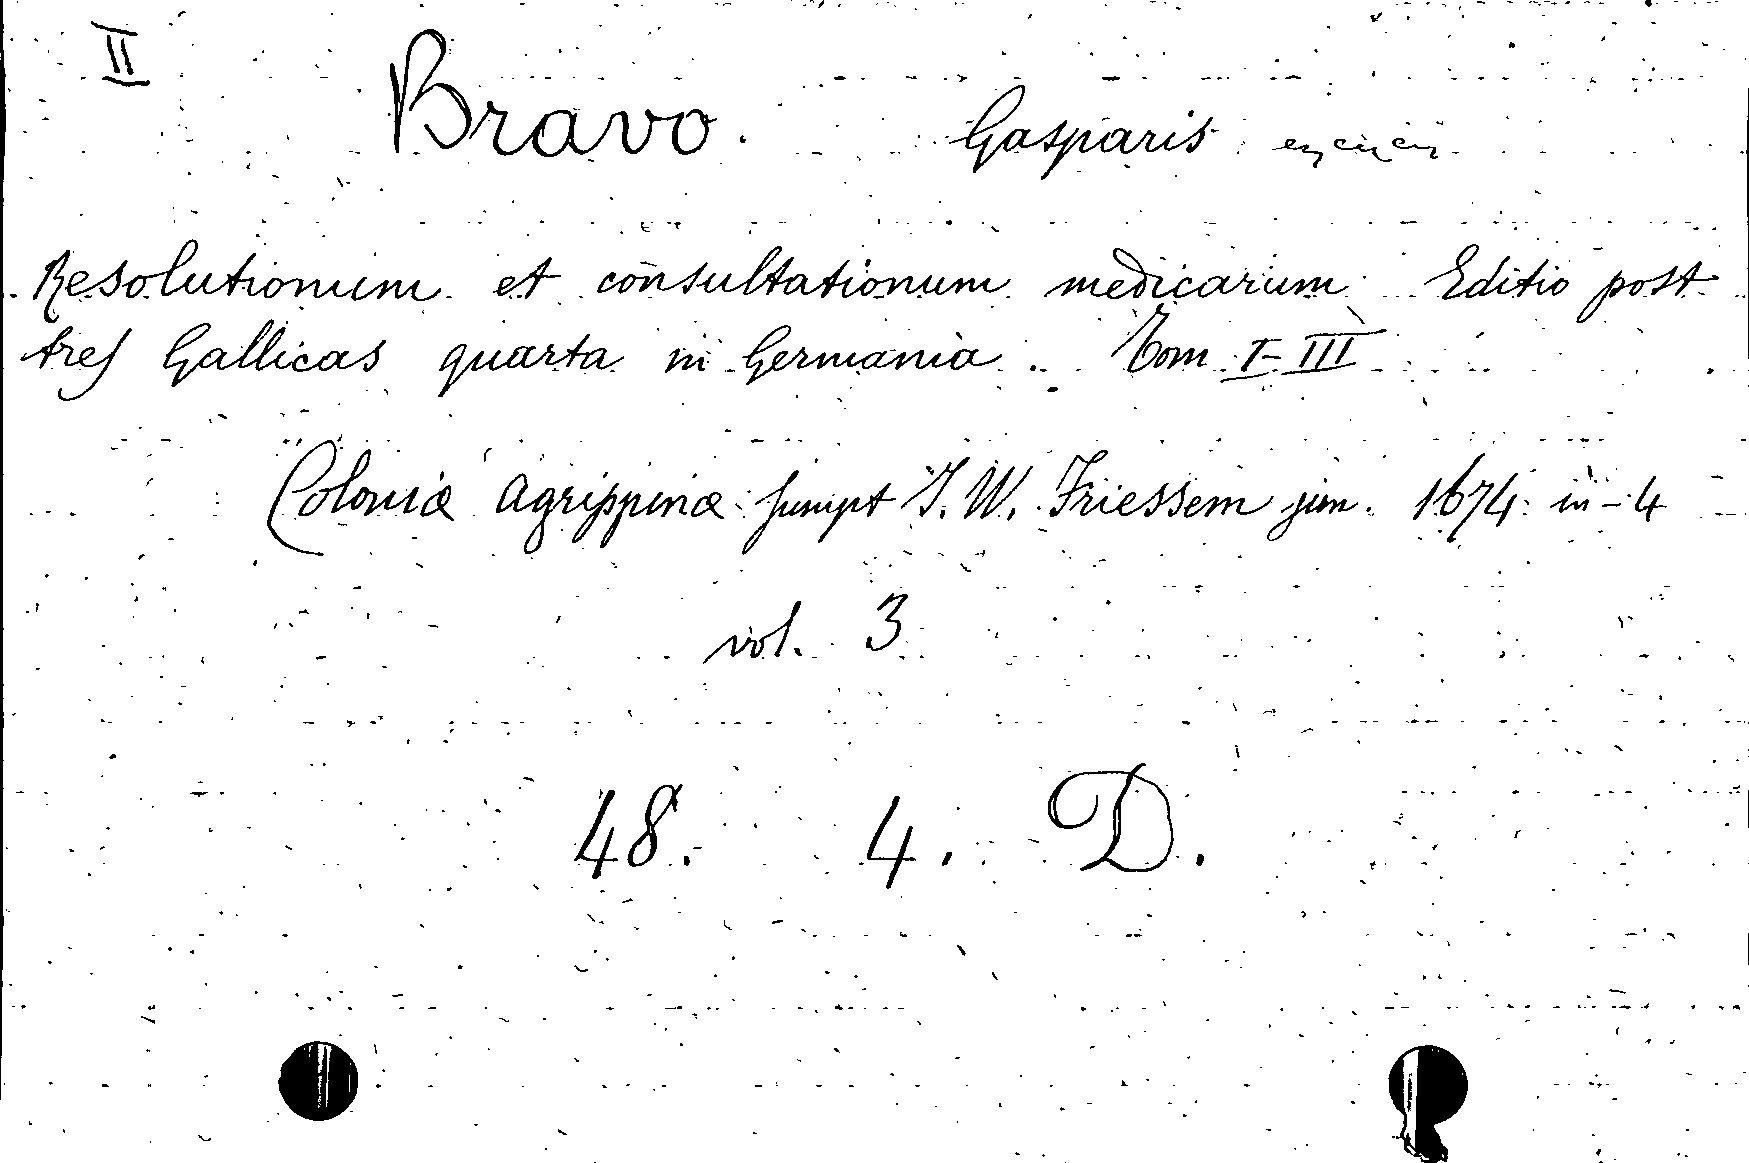 II
Bravo. Gasparis
Resolutionum et consultationum medicarum Editio post
tres Gallicas quarta in Germania. Tom I-III
Coloniæ Agrippinæ sumpt J. W. Friessem jun. 1674 in-4
vol. 3
48. 4. D.